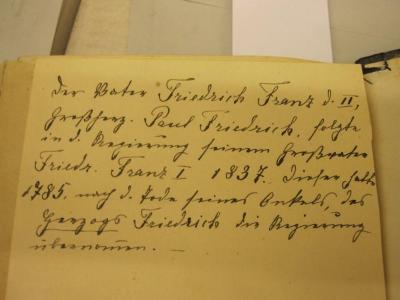 Der Vater Friedrich Franz d. II,
Großherz. Paul Friedrich, folgte
in d. Regierung seinem Großvater
Friedr. Franz I 1837. Dieser hatte
1785, nach d. Tode seines Onkels, des
Herzogs Friedrich die Regierung
übernommen. —